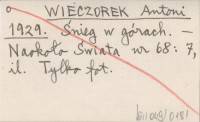 WIECZOREK Antoni
1929. Śnieg w górach. –
Naokoło Świata nr 68: 7,
il. Tylko fot.